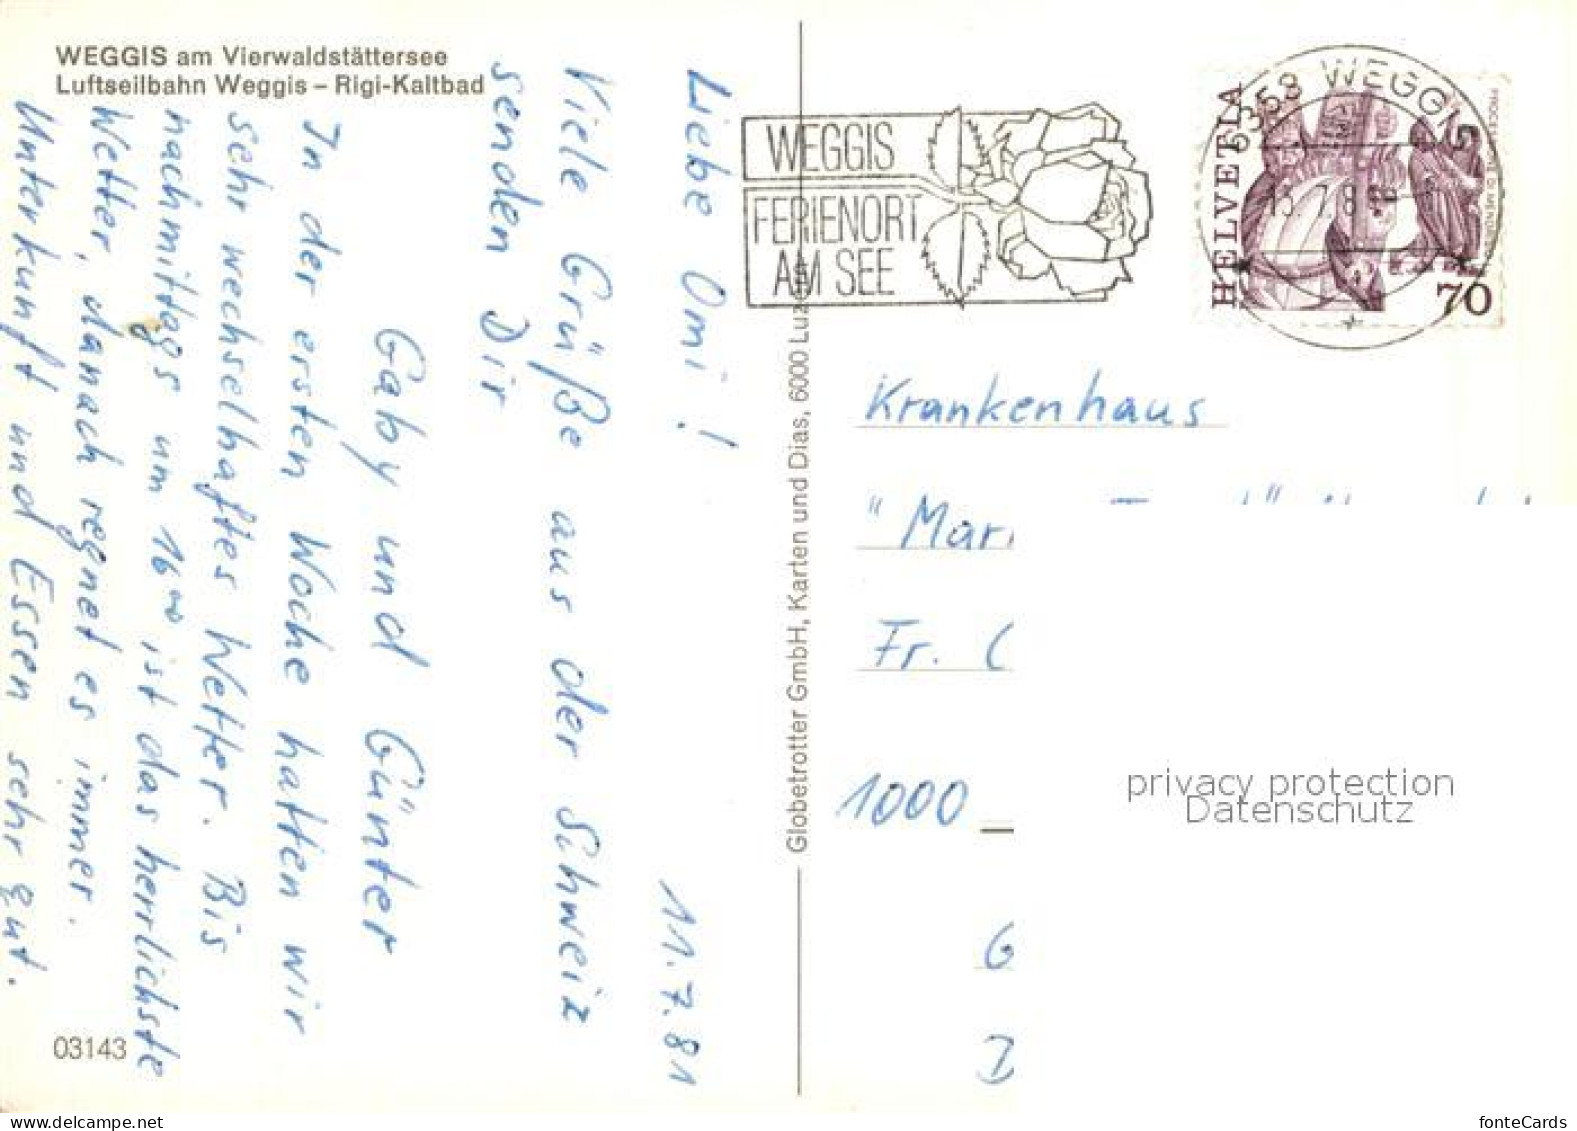 WEGGIS am Vierwaldstättersee
Luftseilbahn Weggis – Rigi-Kaltbad
11.7.81
Liebe Omi!
Viele Grüße aus der Schweiz
senden Dir
Gaby und Günter
In der ersten Woche hatten wir
sehr wechselhaftes Wetter. Bis
nachmittags um 16⁰⁰ ist das herrlichste
Wetter, danach regnet es immer.
Unterkunft und Essen sehr gut.
03143
Globetrotter GmbH, Karten und Dias, 6000 Luz
WEGGIS
FERIENORT
AM SEE
6353 WEGGIS
13.7.8
HELVETIA
70
Krankenhaus
"Mar
Fr.
1000
G
privacy protection
Datenschutz
www.delcampe.net
fonteCards